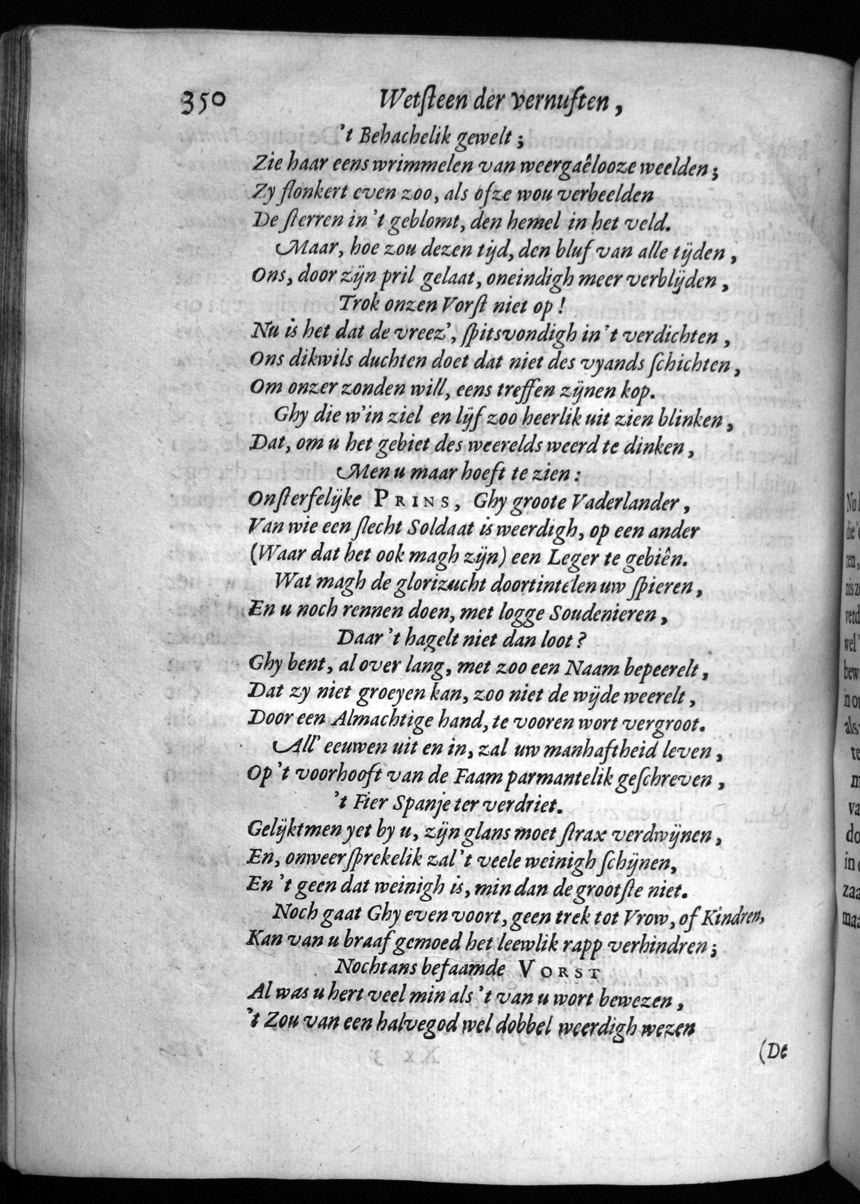 350 Wetſteen der vernuften,
't Behachelik gewelt;
Zie haar eens wrimmelen van weergaêlooze weelden;
Zy flonkert even zoo, als ofze wou verbeelden
De ſterren in 't geblomt, den hemel in het veld.
Maar, hoe zou dezen tijd, den bluf van alle tijden,
Ons, door zijn pril gelaat, oneindigh meer verblijden,
Trok onzen Vorſt niet op!
Nu is het dat de vreez', ſpitsvondigh in 't verdichten,
Ons dikwils duchten doet dat niet des vyands ſchichten,
Om onzer zonden will, eens treffen zijnen kop.
Ghy die w'in ziel en lijf zoo heerlik uit zien blinken,
Dat, om u het gebiet des weerelds weerd te dinken,
Men u maar hoeft te zien:
Onſterfelijke PRINS, Ghy groote Vaderlander,
Van wie een ſlecht Soldaat is weerdigh, op een ander
(Waar dat het ook magh zijn) een Leger te gebiên.
Wat magh de glorizucht doortintelen uw ſpieren,
En u noch rennen doen, met logge Soudenieren,
Daar 't hagelt niet dan loot?
Ghy bent, al over lang, met zoo een Naam bepeerelt,
Dat zy niet groeyen kan, zoo niet de wijde weerelt,
Door een Almachtige hand, te vooren wort vergroot.
All' eeuwen uit en in, zal uw manhaftheid leven,
Op 't voorhooft van de Faam parmantelik geſchreven,
't Fier Spanje ter verdriet.
Gelijktmen yet by u, zijn glans moet ſtrax verdwijnen,
En, onweerſprekelik zal 't veele weinigh ſchijnen,
En 't geen dat weinigh is, min dan de grootſte niet.
Noch gaat Ghy even voort, geen trek tot Vrow, of Kindren,
Kan van u braaf gemoed het leewlik rapp verhindren;
Nochtans befaamde VORST
Al was u hert veel min als 't van u wort bewezen,
't Zou van een halvegod wel dobbel weerdigh wezen
(De